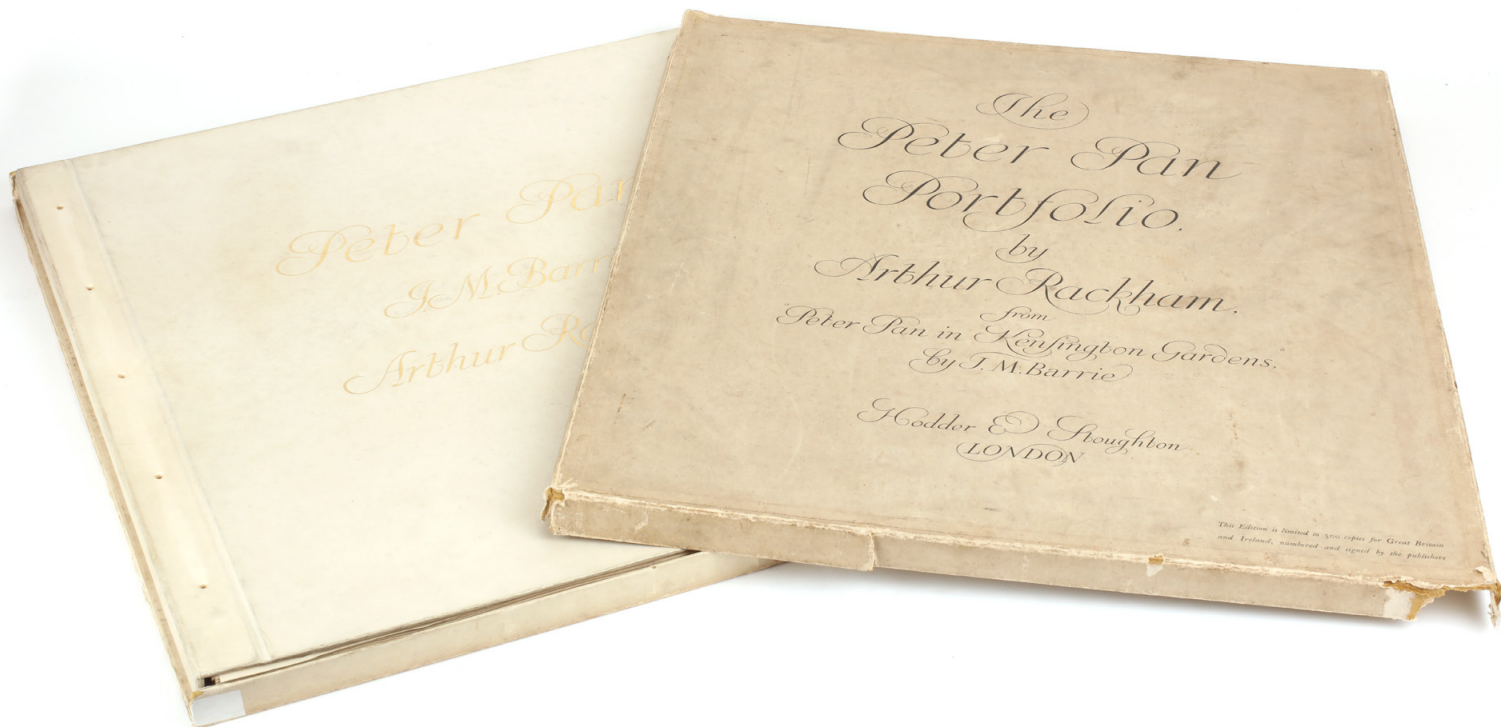 Peter Pan
J.M. Barrie
Arthur
The
Peter Pan
Portfolio.
by
Arthur Rackham.
from
"Peter Pan in Kensington Gardens."
by J. M. Barrie
Hodder & Stoughton
LONDON
This Edition is limited to 500 copies for Great Britain
and Ireland, numbered and signed by the publishers